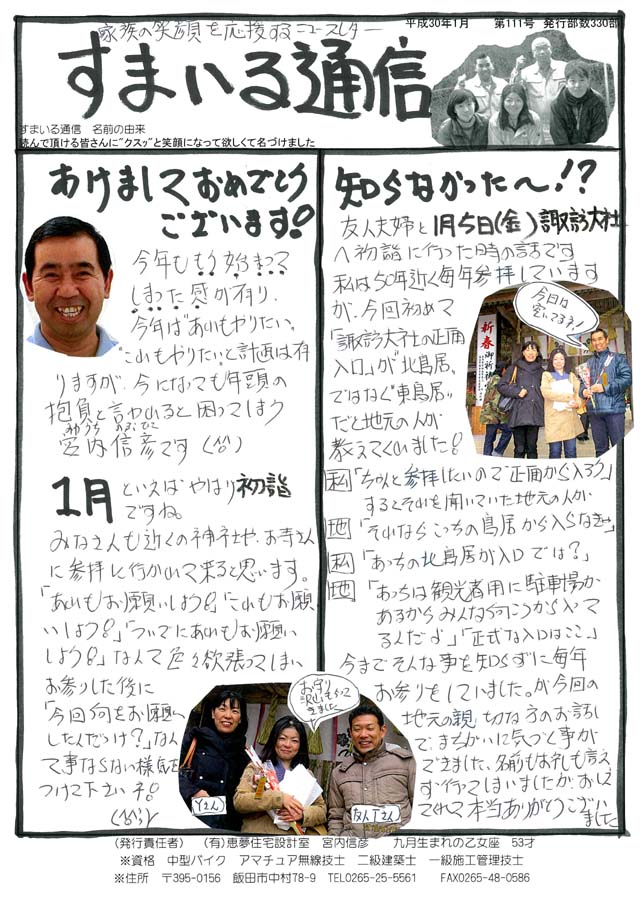 家族の笑顔を応援するニュースレター
平成30年1月　第111号　発行部数330部
すまいる通信
すまいる通信　名前の由来
読んで頂ける皆さんに"クスッ"と笑顔になって欲しくて名づけました
あけましておめでとう
ございます!
今年ももう始まって
しまった感が有り、
今年は"あれもやりたい。
"これもやりたい"と計画は有
りますが、今になっても年頭の
抱負と言われると困ってしまう
みやうち のぶひこ
宮内信彦です(^^)
1月といえば やはり初詣
ですね。
みなさんも近くの神社や、お寺さん
に参拝に行かれて来ると思います。
「あれもお願いしよう!」「これもお願
いしよう!」「ついでにあれもお願い
しよう!」なんて色々欲張ってしまい
お参りした後に
「今回何をお願い
したんだっけ?」なん
て事ならない様気を
つけて下さいネ!
(^^)
知らなかった〜!?
友人夫婦と1月5日(金)諏訪大社
へ初詣に行った時の話です
私は50年近く毎年参拝しています
が、今回初めて
「諏訪大社の正面
入口」が"北鳥居"
ではなく"東鳥居"
だと地元の人が
教えてくれました!
今日は
空いてるネ!
新春 御祈祷
私「ちゃんと参拝したいので正面から入ろう」
するとそれを聞いていた地元の人が
地「それならこっちの鳥居から入らなきゃ」
私「あっちの北鳥居が入口では?」
地「あっちは観光者用に駐車場が
あるからみんな向こうから入って
るんだよ」「正式な入口はここ」
今までそんな事を知らずに毎年
お参りをしていました。が今回の
地元の親切な方のお話し
で、まちがいに気づく事が
できました、名前もお礼も言え
ず行ってしまいましたが、おしえ
てくれて本当ありがとうござい
ました
お守り
Yさん
友人Tさん
(発行責任者)　(有)恵夢住宅設計室　宮内信彦　九月生まれの乙女座　53才
※資格　中型バイク　アマチュア無線技士　二級建築士　一級施工管理技士
※住所　〒395-0156　飯田市中村78-9　TEL0265-25-5561　FAX0265-48-0586